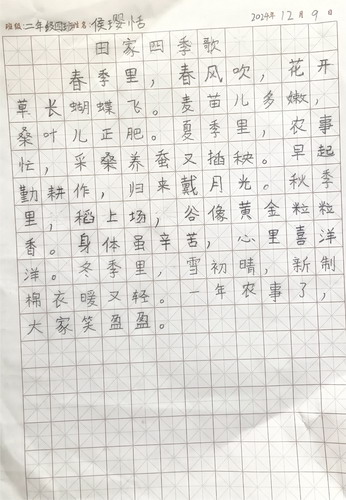 班级:二年级四班 姓名 侯璎恬 2024年12月9日
田家四季歌
春季里，春风吹，花开
草长蝴蝶飞。麦苗儿多嫩，
桑叶儿正肥。夏季里，农事
忙，采桑养蚕又插秧。早起
勤耕作，归来戴月光。秋季
里，稻上场，谷像黄金粒粒
香。身体虽辛苦，心里喜洋
洋。冬季里，雪初晴，新制
棉衣暖又轻。一年农事了，
大家笑盈盈。